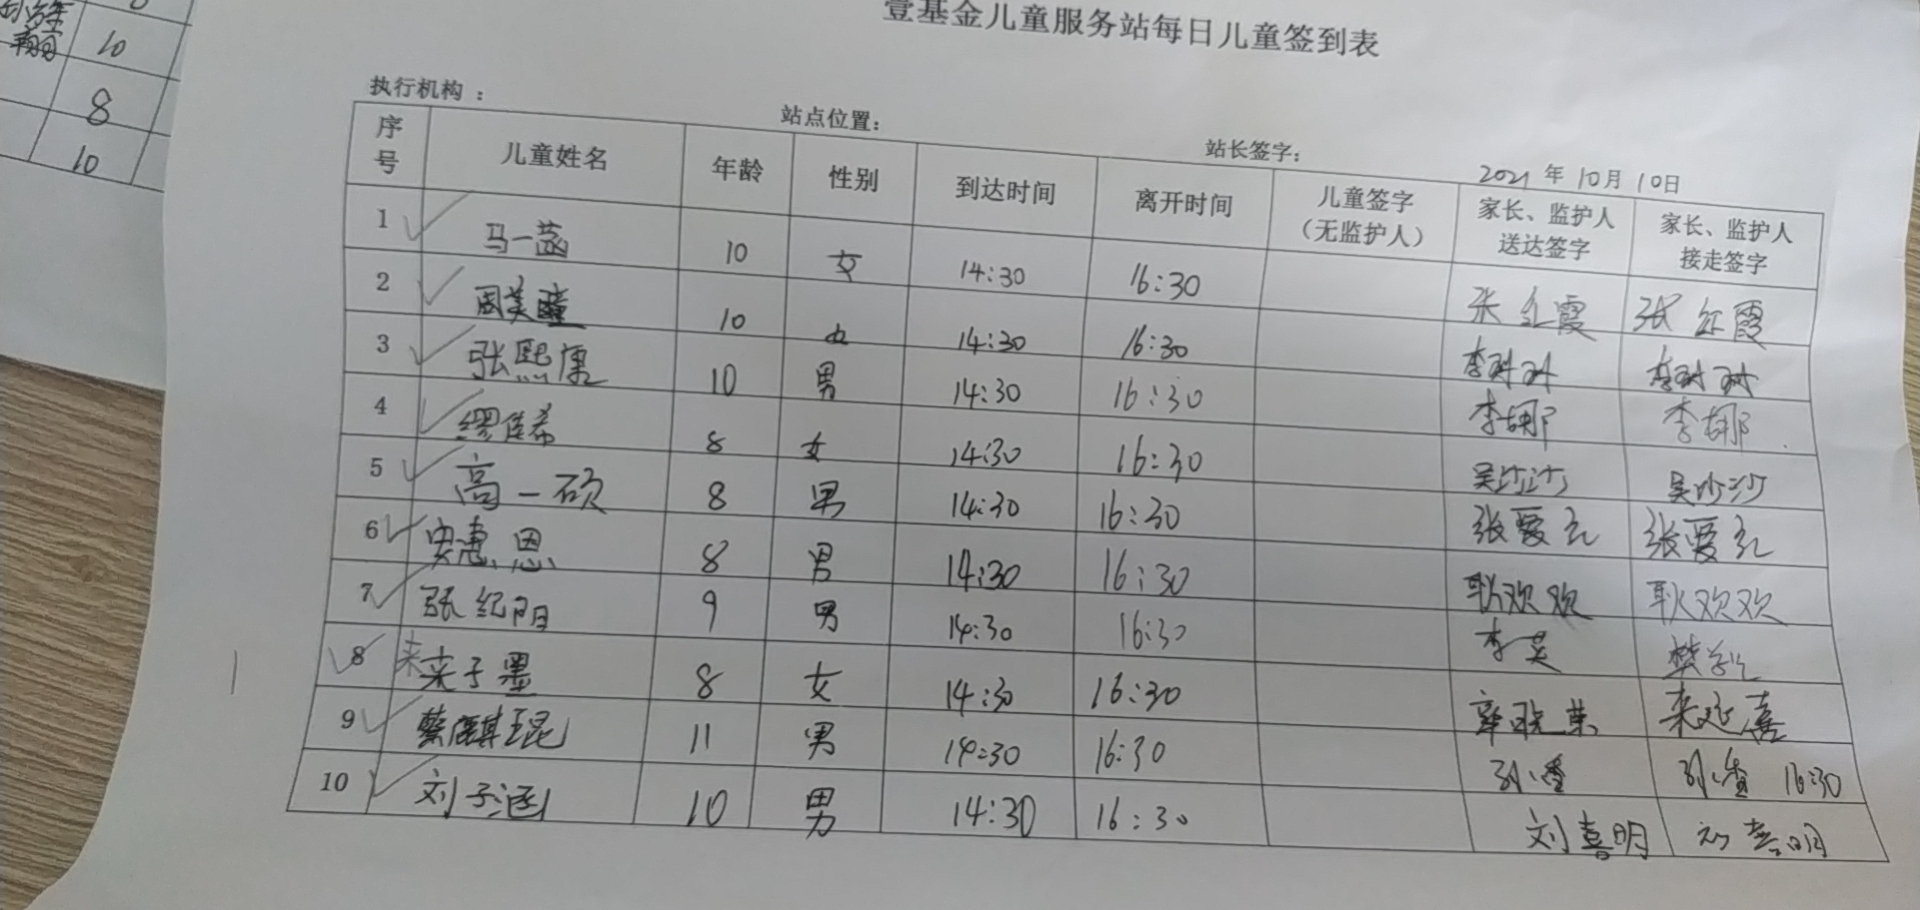 壹基金儿童服务站每日儿童签到表
执行机构： 站点位置： 站长签字： 2021年10月10日
序号 儿童姓名 年龄 性别 到达时间 离开时间 儿童签字（无监护人） 家长、监护人送达签字 家长、监护人接走签字
1 马一菡 10 女 14:30 16:30 张红霞 张红霞
2 周美瞳 10 女 14:30 16:30
3 张熙康 10 男 14:30 16:30 李娜 李娜
4 缪佳希 8 女 14:30 16:30 吴沙沙 吴沙沙
5 高一硕 8 男 14:30 16:30 张爱红 张爱红
6 安惠恩 8 男 14:30 16:30 耿欢欢 耿欢欢
7 张纪阳 9 男 14:30 16:30 李英
8 来子墨 8 女 14:30 16:30 来延喜
9 蔡麒琨 11 男 14:30 16:30 16:30
10 刘子涵 10 男 14:30 16:30 刘喜明 刘喜明
10
8
10